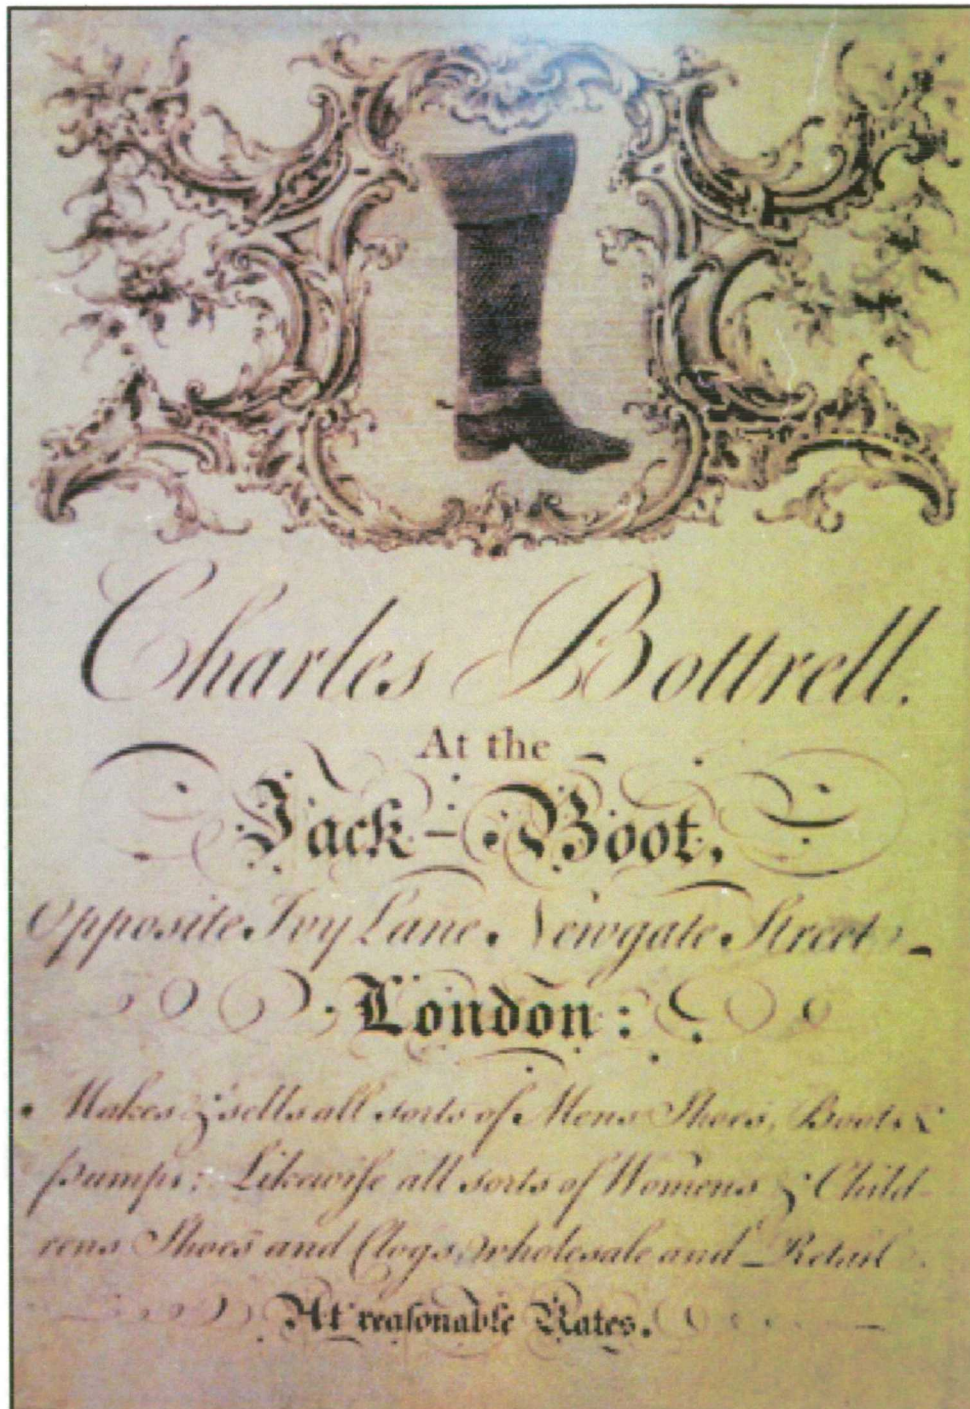 Charles Bottrell.
At the
Jack-Boot,
Opposite Ivy Lane Newgate Street
London:
Makes & sells all sorts of Mens Shoes, Boots &
pumps: Likewiſe all sorts of Womens & Child-
rens Shoes and Clogs, wholesale and Retail
At reaſonable Rates.